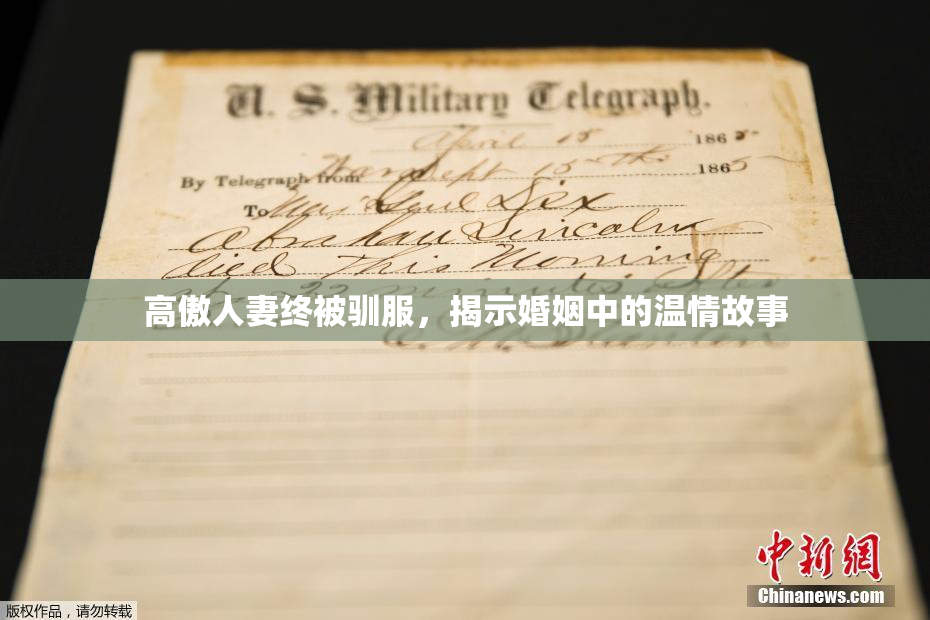 U. S. Military Telegraph.
April 15 1865
By Telegraph from War Dept 15th 1865
To Maj Genl Dix
Abraham Lincoln
died This Morning
at 22 minutes after
E. M. Stanton
高傲人妻终被驯服，揭示婚姻中的温情故事
中新网
Chinanews.com
版权作品，请勿转载